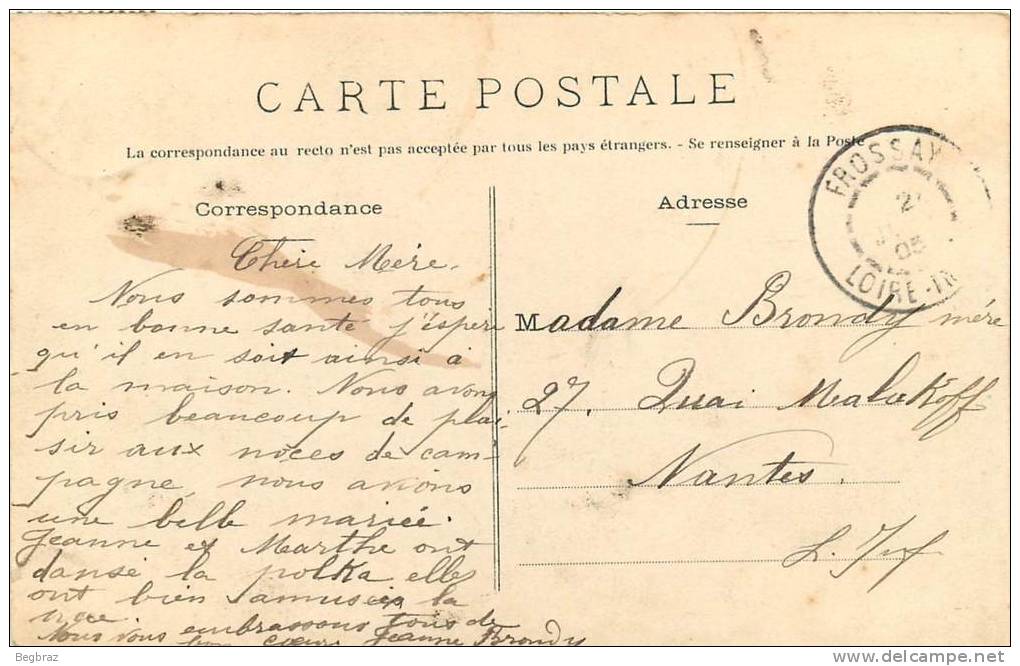 CARTE POSTALE
La correspondance au recto n'est pas acceptée par tous les pays étrangers. - Se renseigner à la Poste
Correspondance
Chère Mère.
Nous sommes tous
en bonne santé j'éspère
qu'il en soit ainsi à
la maison. Nous avons
pris beaucoup de plai-
sir aux nòces de cam-
pagne, nous avions
une belle mariée.
Jeanne et Marthe ont
dansé la polka elles
ont bien amusées la
Nous vous embrassons tous de
bon coeur Jeanne Brondy
Adresse
Madame Brondy mère
27, Quai Malakoff
Nantes.
L. Inf
FROSSAY
2
05
LOIRE-IN
Begbraz
delcampe.net